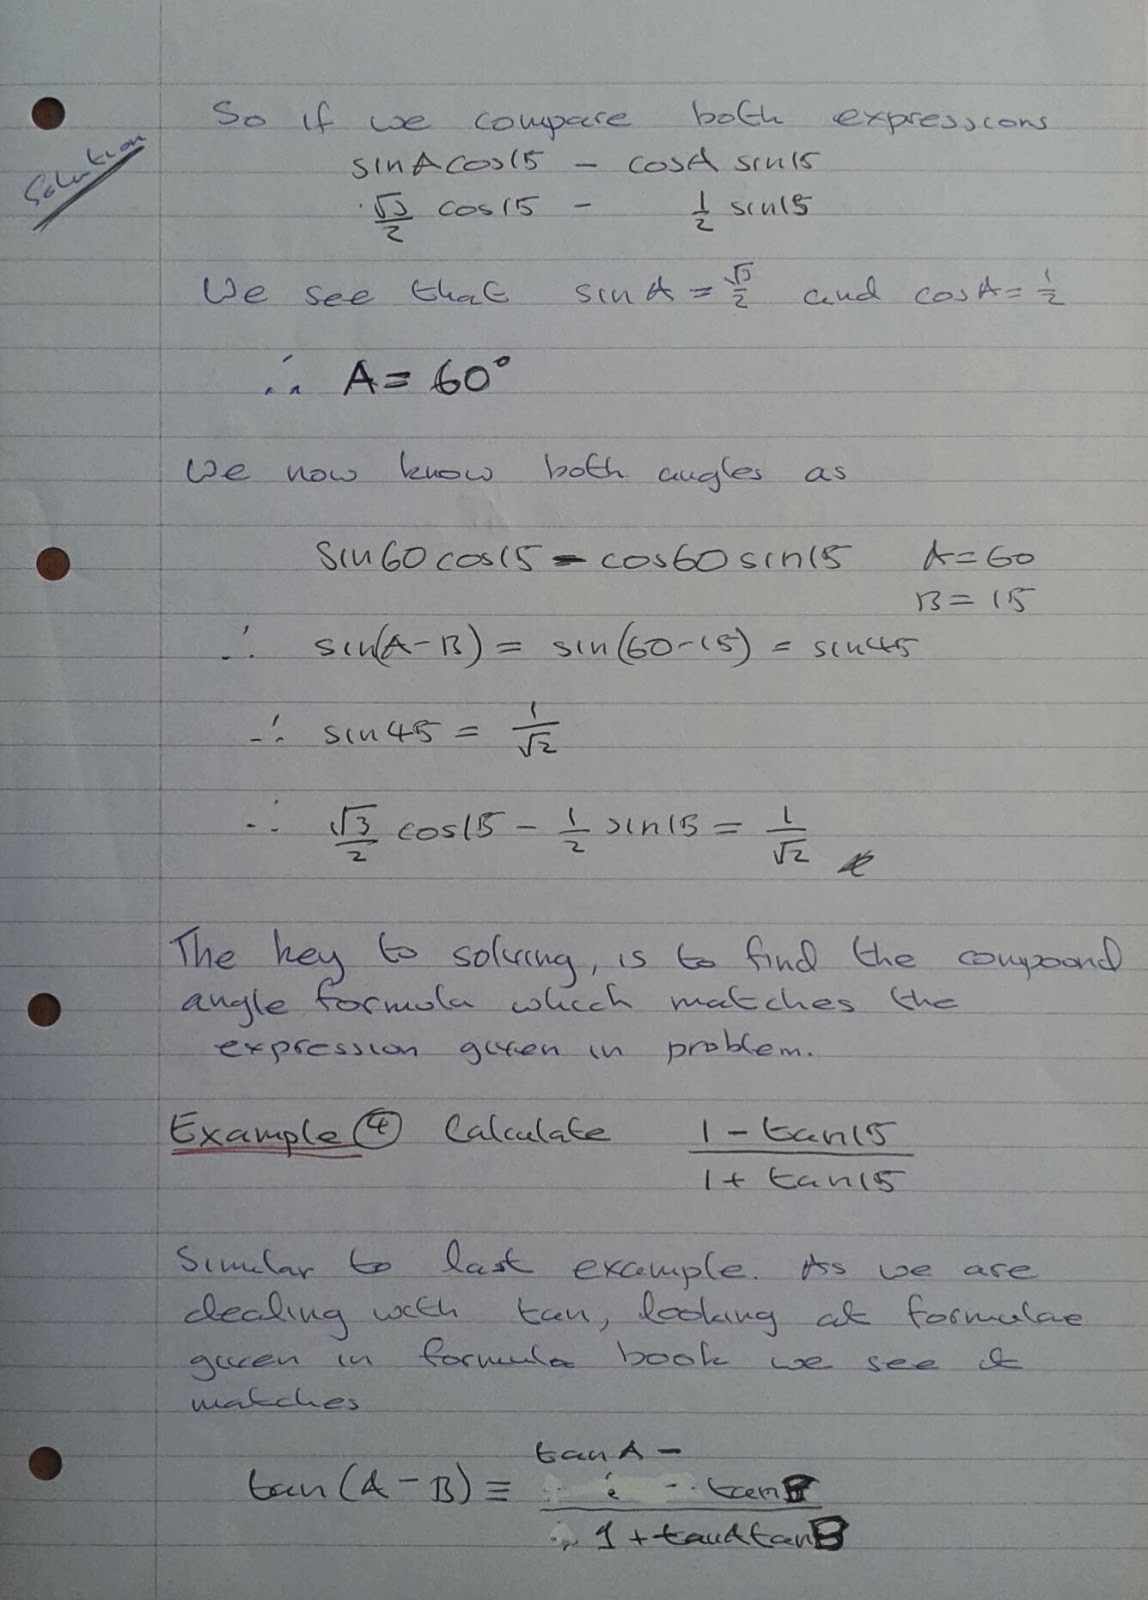 So if we compare both expressions
Solution
sinAcos15 - cosA sin15
√3/2 cos15 - 1/2 sin15
We see that sinA = √3/2 and cosA = 1/2
∴ A = 60°
We now know both angles as
sin60cos15 - cos60sin15 A = 60
B = 15
∴ sin(A-B) = sin(60-15) = sin45
∴ sin45 = 1/√2
∴ √3/2 cos15 - 1/2 sin15 = 1/√2
The key to solving, is to find the compound
angle formula which matches the
expression given in problem.
Example ④ Calculate 1 - tan15
1 + tan15
Similar to last example. As we are
dealing with tan, looking at formulae
given in formula book we see it
matches
tanA -
tan(A-B) ≡ tanB
1 + tanAtanB